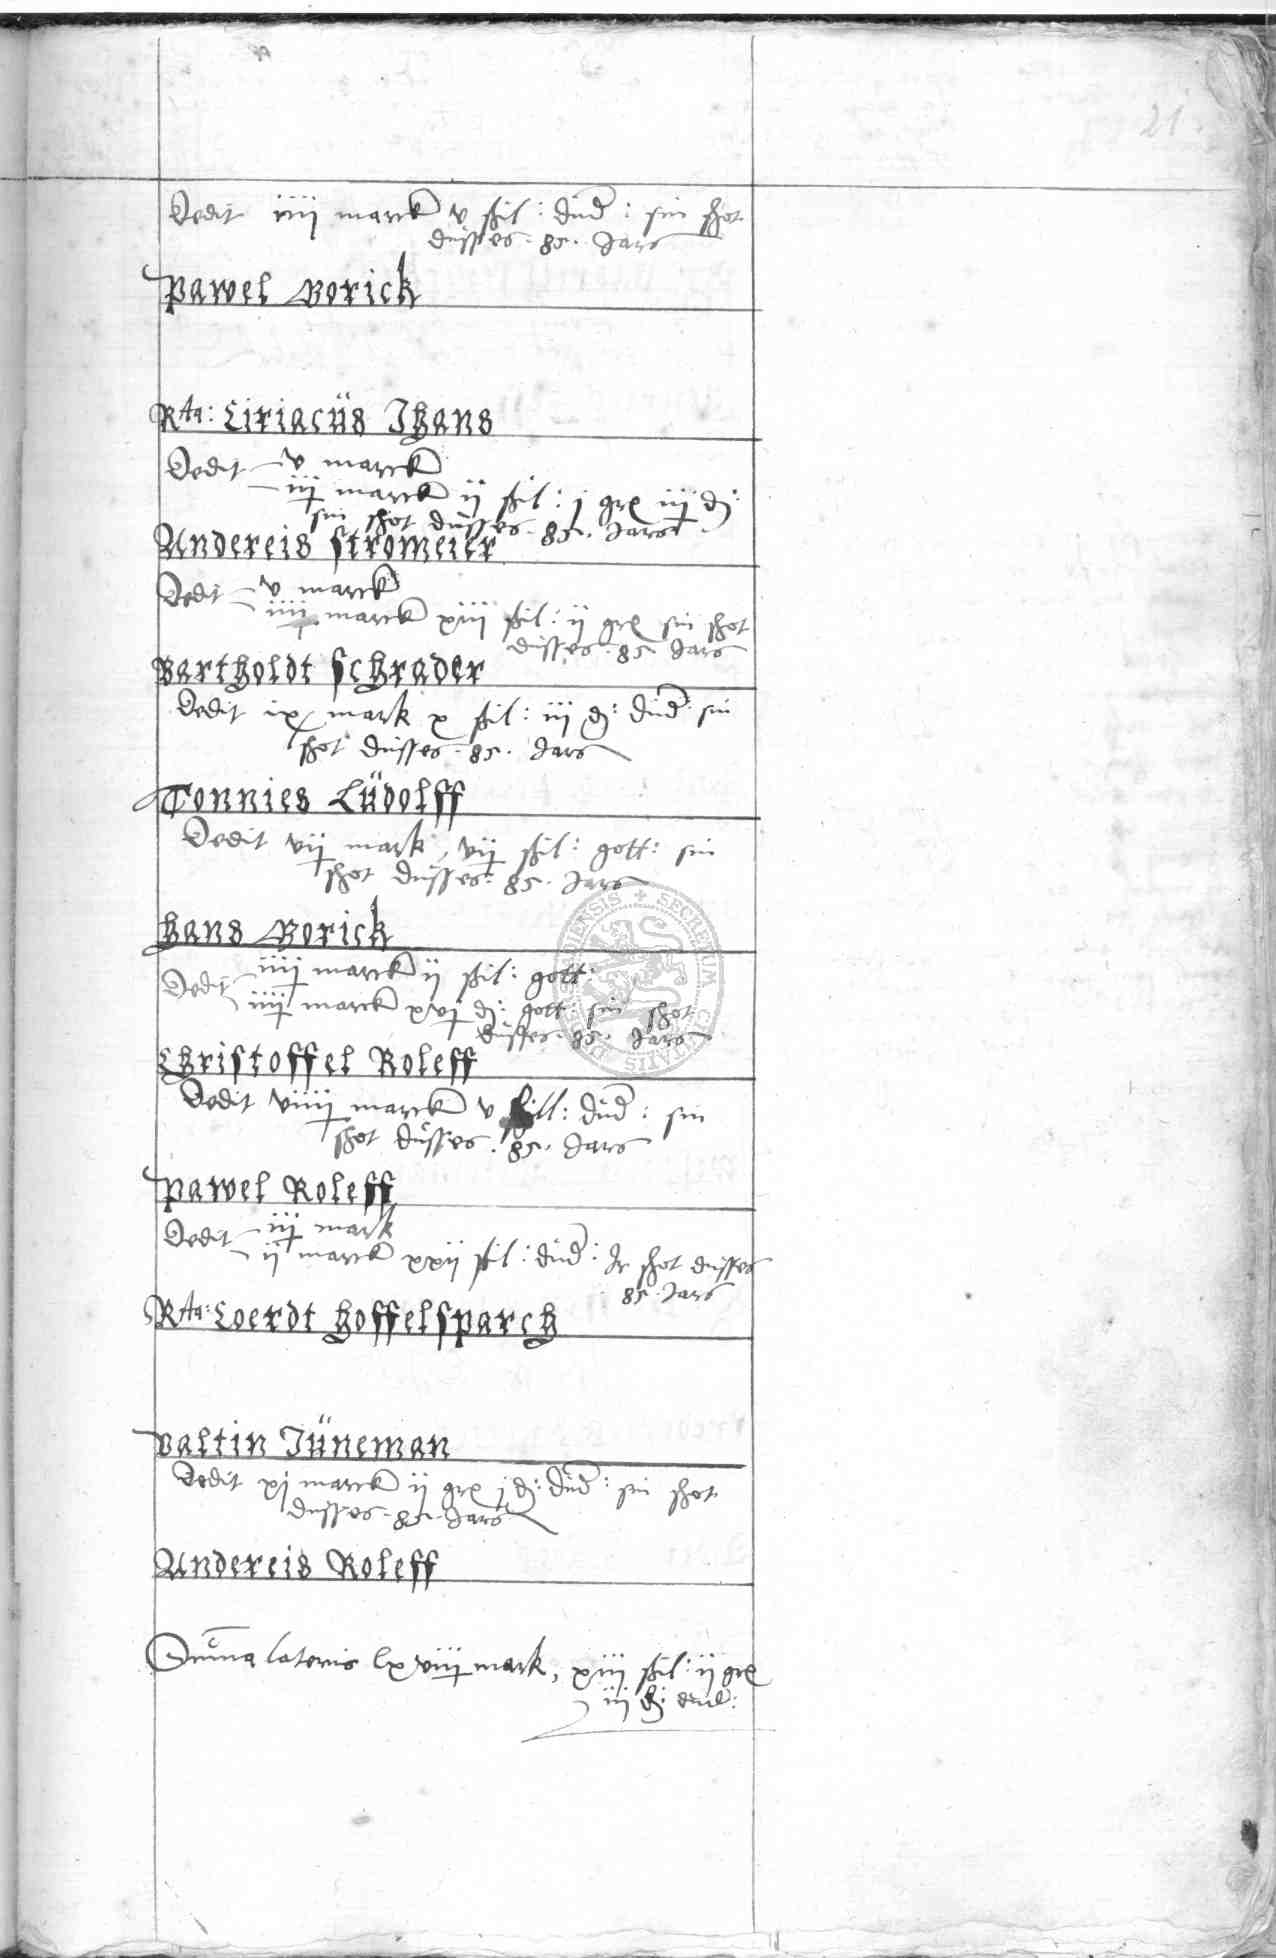 21
Dedit iiij marck v ßil: dud: sin shot
dusses. 85. Jars
Pawel Borick
Rta: Ciriacüs Jhans
Dedit v marck
iij marck ij ßil: j gr iij d:
sin shot dusses. 85. Jars
Andereis Stromeier
Dedit v marck
iiij marck xiij ßil: ij gr sin shot
dusses. 85. Jars
Bartholdt Schrader
Dedit ix mark x ßil: iij d: dud: sin
shot dusses. 85. Jars
Tonnies Lüdolff
Dedit vij mark, vij ßil: gott: sin
shot dusses. 85. Jars
Hans Borick
Dedit iiij marck ij ßil: gott:
iiij marck xvj d: gott: sin shot
dusses. 85. Jars
Christoffel Roleff
Dedit viiij marck v ßill: dud: sin
shot dusses. 85. Jars
Pawel Roleff
Dedit iij mark
ij marck xxij ßil: dud: Jr shot dusses
85. Jars
Rta: Coerdt Hoffelsparch
Valtin Jüneman
Dedit xj marck ij gr j d: dud: sin shot
dusses. 85. Jars
Andereis Roleff
Suma lateris lxviij mark, xiij ßil: ij gr
iij d:
SECRETUM CIVITATIS